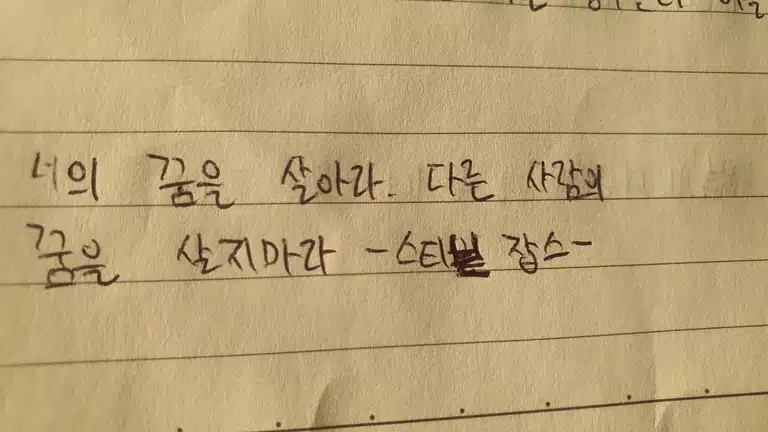 너의 꿈을 살아라. 다른 사람의
꿈을 살지마라 -스티븐 잡스-